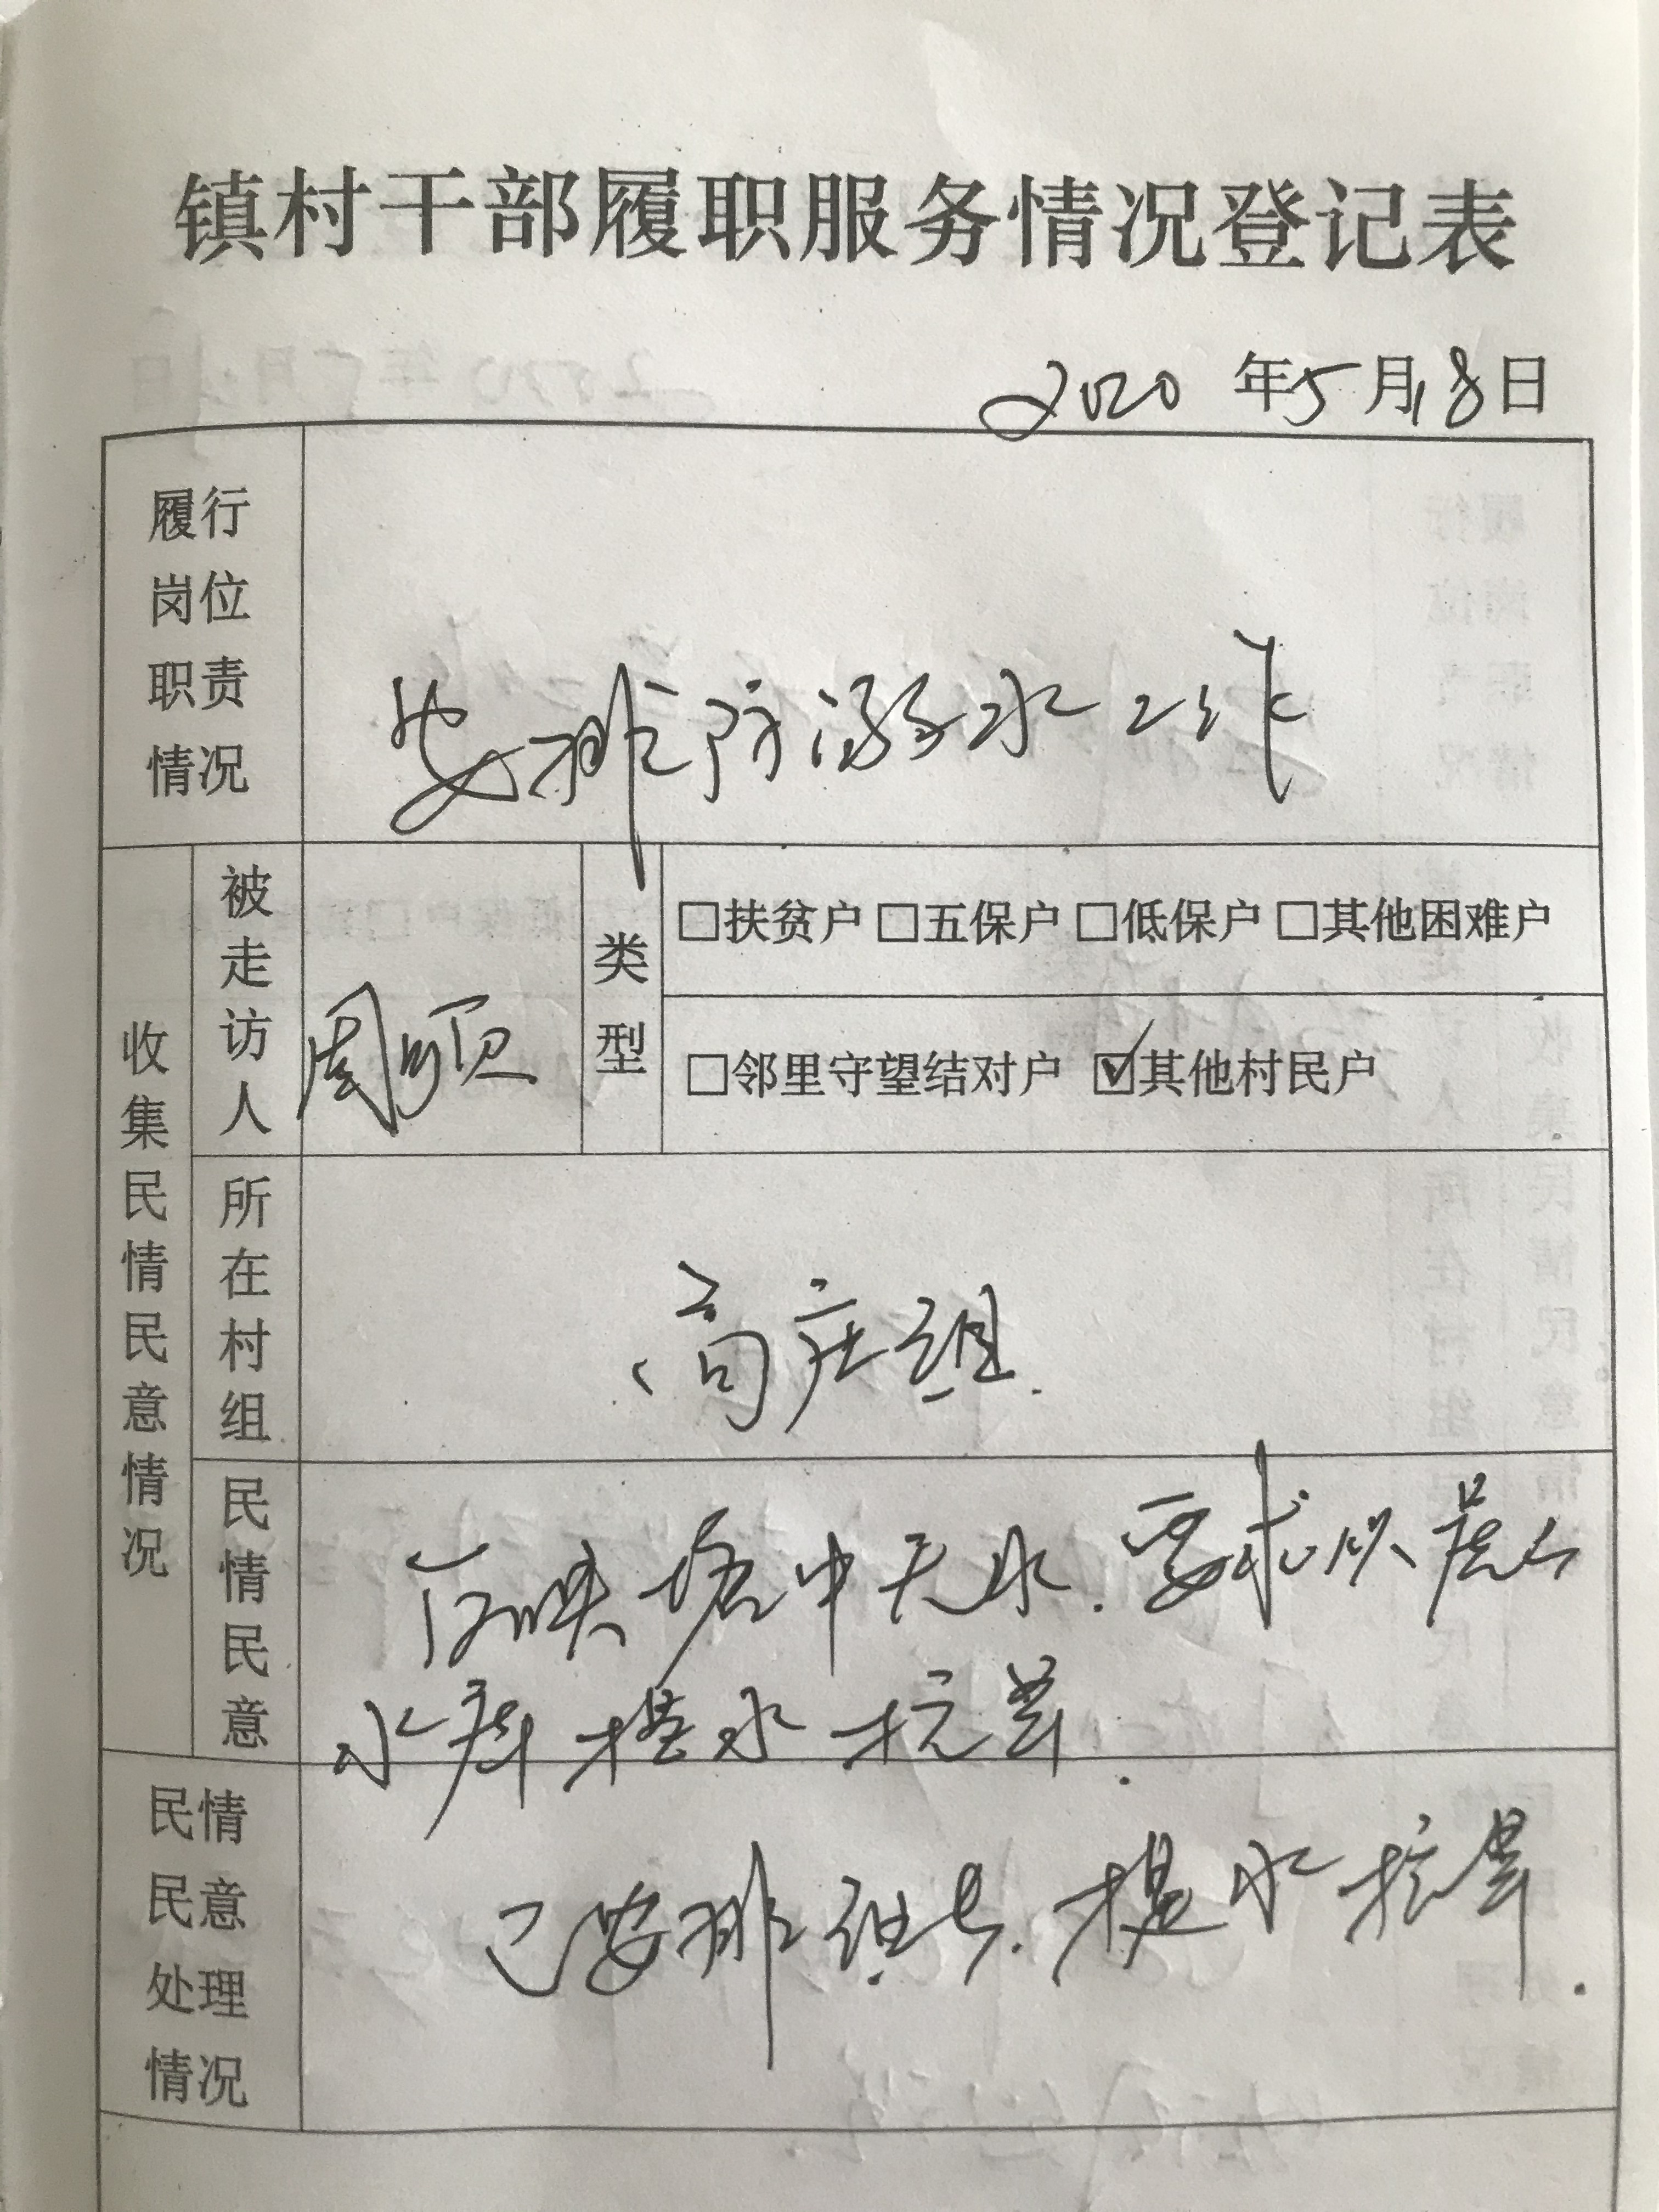 镇村干部履职服务情况登记表
2020年5月18日
履行岗位职责情况
安排防溺水工作
收集民情民意情况
被走访人
周顺
类型
□扶贫户 □五保户 □低保户 □其他困难户
□邻里守望结对户 ☑其他村民户
所在村组
高庄组.
民情民意
反映塘中无水.要求从
水库提水抗旱.
民情民意处理情况
已安排组长.提水抗旱.